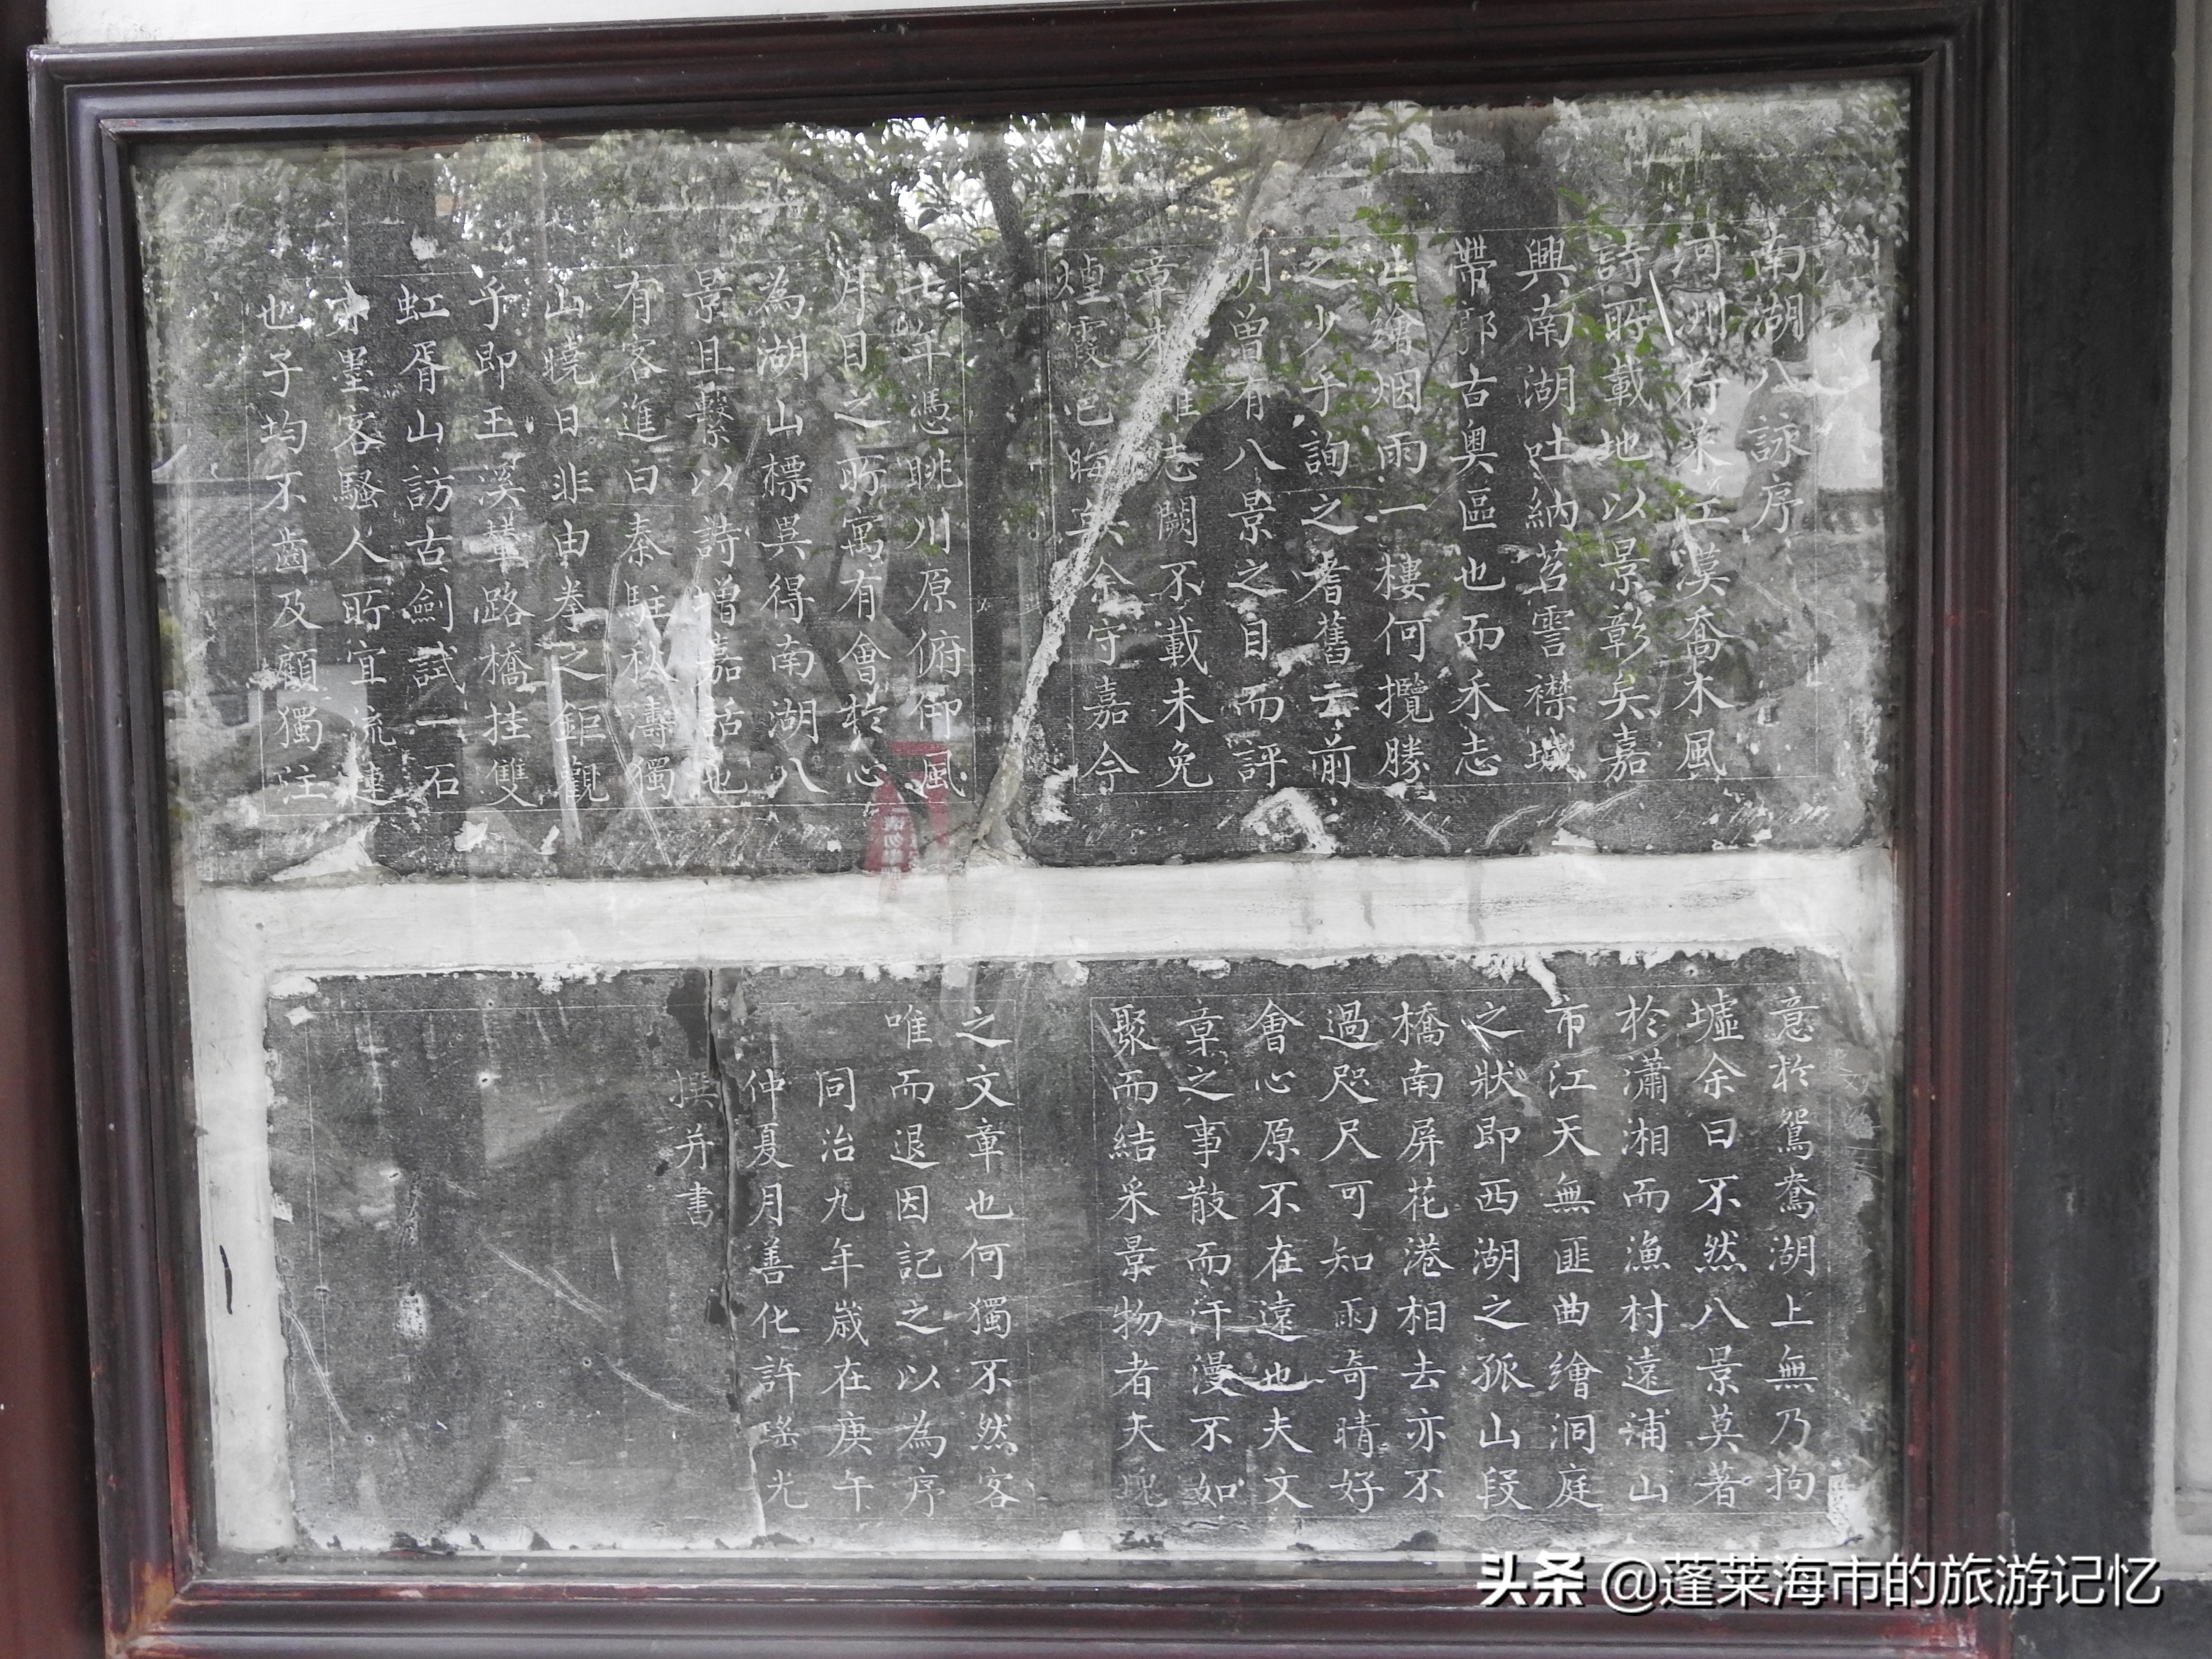 南湖八詠序
河洲荇菜江漢喬木風
詩所載地以景彰矣嘉
興南湖吐納苕霅襟城
帶郭古奥區也而禾志
止繪烟雨一樓何攬勝
之少乎詢之耆舊云前
明曽有八景之目而評
章未
志闕不載未免
煙霞
晦矣余守嘉今
年憑眺川原俯仰風
月目之所寓有會於心
為湖山標異得南湖八
景且繫以詩增嘉話也
有客進曰秦駐秋濤獨
山曉日非由拳之鉅觀
乎即王溪輦路橋挂雙
虹胥山訪古劍試一石
亦墨客騷人所宜流連
也子均不齒及顧獨注
意於鴛鴦湖上無乃拘
墟余曰不然八景莫著
於瀟湘而漁村遠浦山
市江天無匪曲繪洞庭
之狀即西湖之孤山段
橋南屏花港相去亦不
過咫尺可知雨奇晴好
會心原不在遠也夫文
章之事散而汗漫不如
聚而結采景物者大塊
之文章也何獨不然客
唯而退因記之以為序
同治九年歲在庚午
仲夏月善化許瑤光
撰并書
头条 @蓬莱海市的旅游记忆